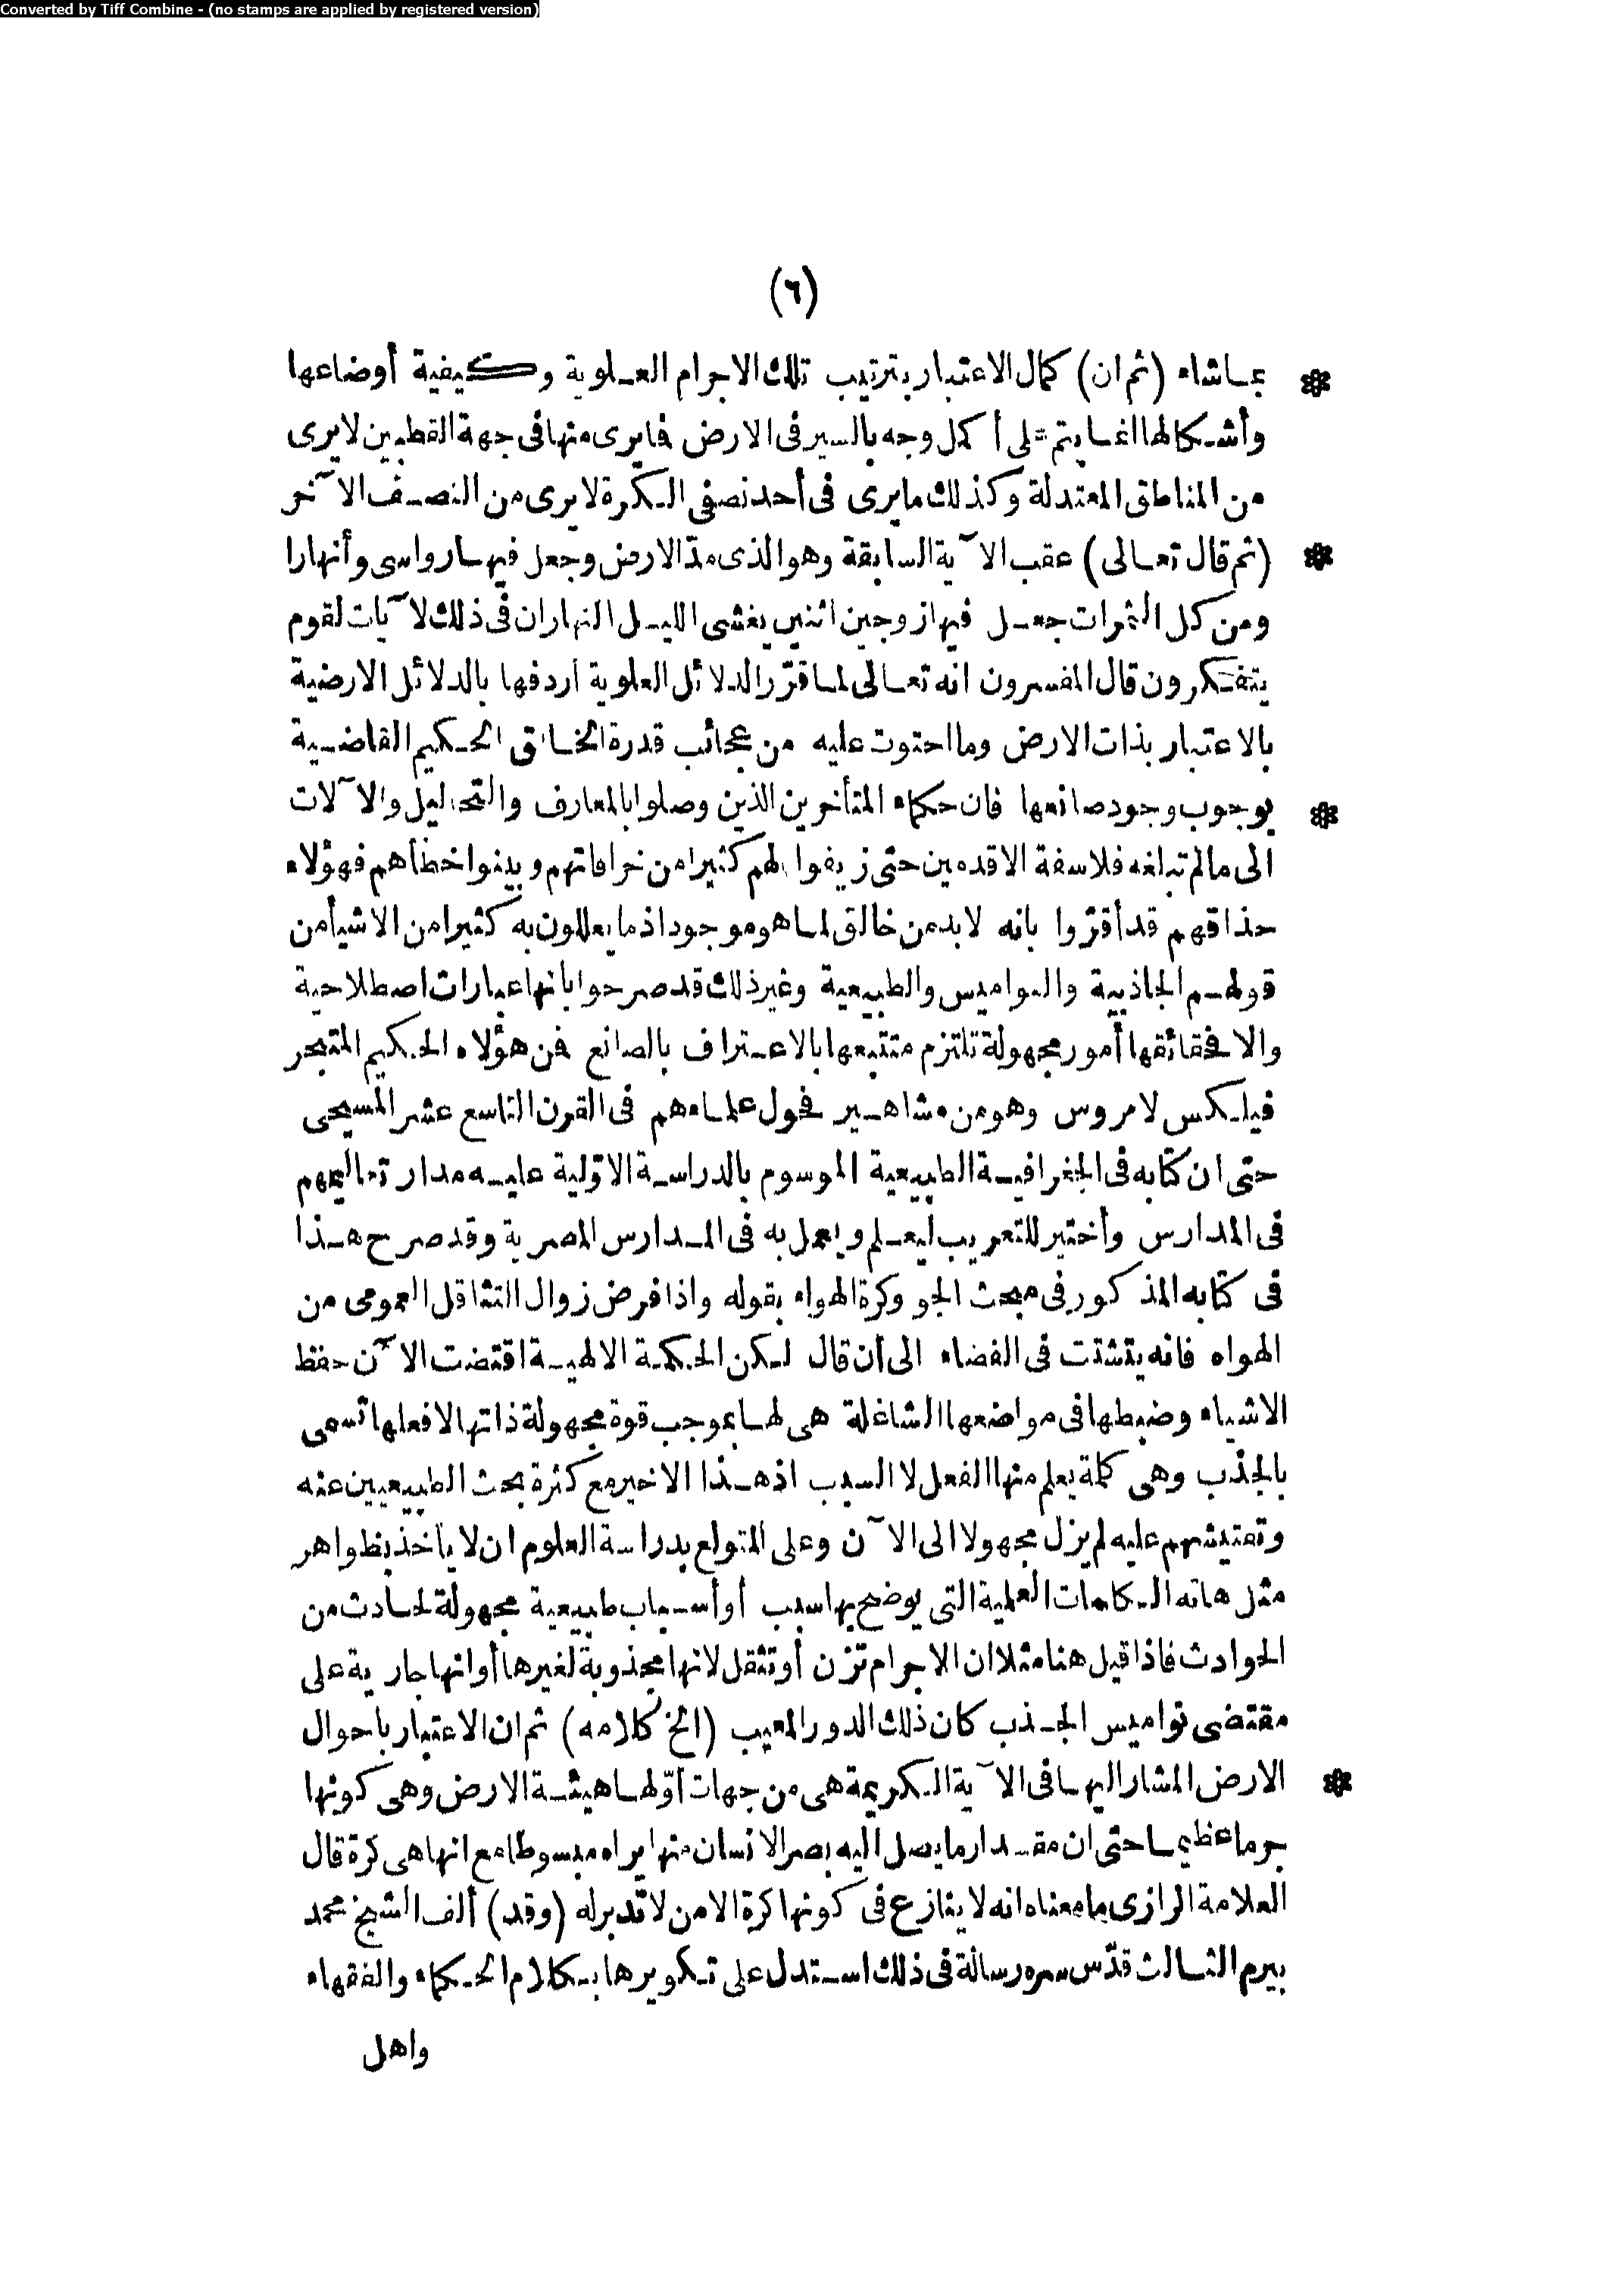 Converted by Tiff Combine - (no stamps are applied by registered version)
(٦)
بما شاء (ثم ان) كمال الاعتبار بترتيب تلك الاجرام العلوية وكيفية أوضاعها
وأشكالها انما يتم على أكمل وجه بالسير فى الارض فما يرى منها فى جهة القطبين لا يرى
من المناطق المعتدلة وكذلك ما يرى فى أحد نصفى الكرة لا يرى من النصف الآخر
(ثم قال تعالى) عقب الآية السابقة وهو الذى مدّ الارض وجعل فيها رواسى وأنهارا
ومن كل الثمرات جعل فيها زوجين اثنين يغشى الليل النهار ان فى ذلك لآيات لقوم
يتفكرون قال المفسرون انه تعالى لما قرّر الدلائل العلوية أردفها بالدلائل الارضية
بالاعتبار بذات الارض وما احتوت عليه من عجائب قدرة الخالق الحكيم القاضية
بوجوب وجود صانعها فان حكماء المتأخرين الذين وصلوا بالمعارف والتحاليل والآلات
الى مالم تبلغه فلاسفة الاقدمين حتى زيفوا لهم كثيرا من خرافاتهم وبينوا خطأهم فهؤلاء
حذاقهم قد أقرّوا بانه لابد من خالق لما هو موجود اذ ما يعللون به كثيرا من الاشيأ من
قولهم الجاذبية والنواميس والطبيعية وغير ذلك قد صرحوا بانها عبارات اصطلاحية
والا فحقائقها أمور مجهولة تلتزم متتبعها بالاعتراف بالصانع فمن هؤلاء الحكيم المتبحر
فيلكس لامروس وهو من مشاهير فحول علماءهم فى القرن التاسع عشر المسيحى
حتى ان كتابه فى الجغرافية الطبيعية الموسوم بالدراسة الاوّلية عليه مدار تعاليمهم
فى المدارس وأختير للتعريب ليعلم ويعمل به فى المدارس المصرية وقد صرح هذا
فى كتابه المذكور فى مبحث الجو وكرة الهواء بقوله واذا فرض زوال التثاقل العمومى من
الهواء فانه يتشتت فى الفضاء الى أن قال لكن الحكمة الالهية اقتضت الآن حفظ
الاشياء وضبطها فى مواضعها الشاغلة هى لها بموجب قوة مجهولة ذاتها لا فعلها تسمى
بالجذب وهى كلمة يعلم منها الفعل لا السبب اذ هذا الاخير مع كثرة بحث الطبيعيين عنه
وتفتيشهم عليه لم يزل مجهولا الى الآن وعلى المتولع بدراسة العلوم ان لا يأخذ بظواهر
مثل هاته الكلمات العلمية التى يوضح بها سبب أو أسباب طبيعية مجهولة لحادث من
الحوادث فاذا قيل هنا مثلا ان الاجرام تزن أو تثقل لانها مجذوبة لغيرها أو انها جارية على
مقتضى نواميس الجذب كان ذلك الدور المعيب (الخ كلامه) ثم ان الاعتبار باحوال
الارض المشار اليها فى الآية الكريمة هى من جهات أوّلها هيئة الارض وهى كونها
جرما عظيما حتى ان مقدار ما يصل اليه بصر الانسان منها يراه مبسوطا مع انها هى كرة قال
العلامة الرازى ما معناه انه لا ينازع فى كونها كرة الا من لا تدبر له (وقد) ألف الشيخ محمد
بيرم الثالث قدّس سره رسالة فى ذلك استدل على تكويرها بكلام الحكماء والفقهاء
واهل